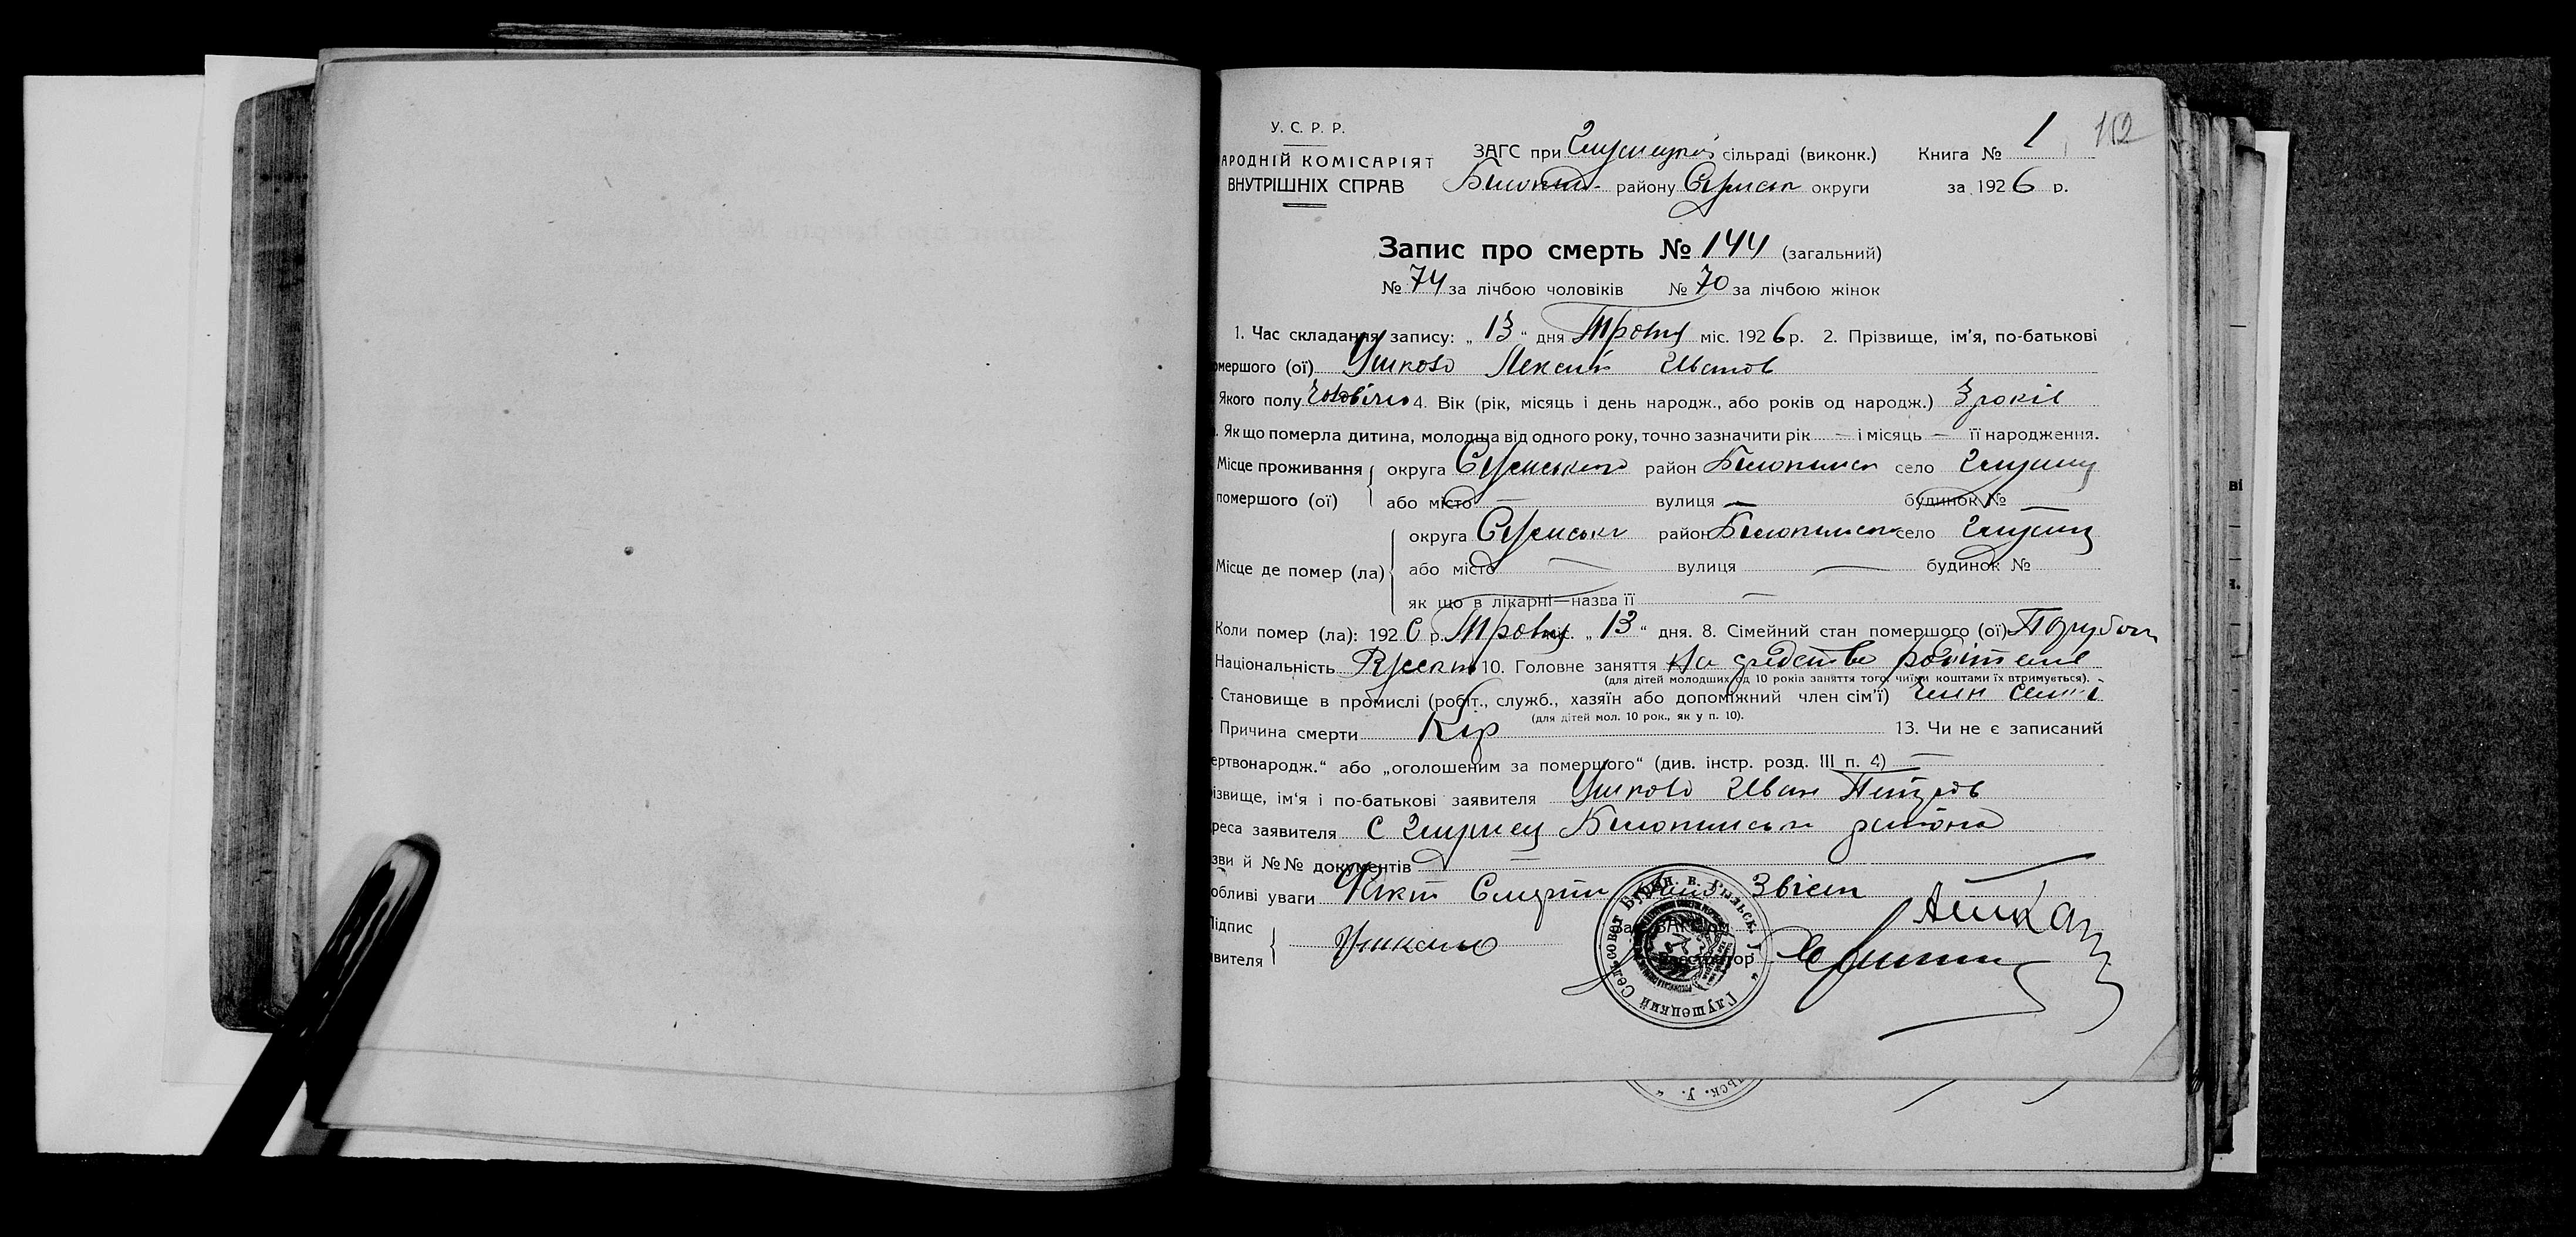 У. С. Р. Р.
АРОДНІЙ КОМІСАРІЯТ
ВНУТРІШНІХ СПРАВ
ЗАГС при Глушецкой сільраді (виконк.) Книга № 1 112
району Сумськ округи за 1926 р.
Запис про смерть № 144 (загальний)
№ 74 за лічбою чоловіків № 70 за лічбою жінок
1. Час складання запису: „ 13 “ дня Травня міс. 1926 р. 2. Прізвище, ім’я, по-батькові
омершого (ої) Ушково Лексій Иванов
Якого полу 4. Вік (рік, місяць і день народж., або років од народж.) 3 років
. Як що померла дитина, молодша від одного року, точно зазначити рік — і місяць — її народження.
Місце проживання округа Сумського район Білопильск село Глушец
помершого (ої) або місто — вулиця — будинок №
округа Сумськи район Білопильск село Глушец
Місце де помер (ла) або місто — вулиця — будинок №
як що в лікарні—назва її —
Коли помер (ла): 1926 р. Травня міс. „ 13 “ дня. 8. Сімейний стан помершого (ої)
Національність 10. Головне заняття На
(для дітей молодших од 10 років заняття того, чиїми коштами їх втримується).
. Становище в промислі (робіт., служб., хазяїн або допоміжний член сім’ї) Член семьі
(для дітей мол. 10 рок., як у п. 10).
Причина смерти Кір 13. Чи не є записаний
ертвонародж.“ або „оголошеним за помершого“ (див. інстр. розд. III п. 4) —
ізвище, ім’я і по-батькові заявителя Ушково Иван Петров
реса заявителя С Глушец Білопильськ района
зви й №№ документів —
обливі уваги Факт Смерти
Підпис
явителя
Реєстратор
Глушецкий Сельсовет Бурын. в. Рыльск. У.
ьск. У.
ві